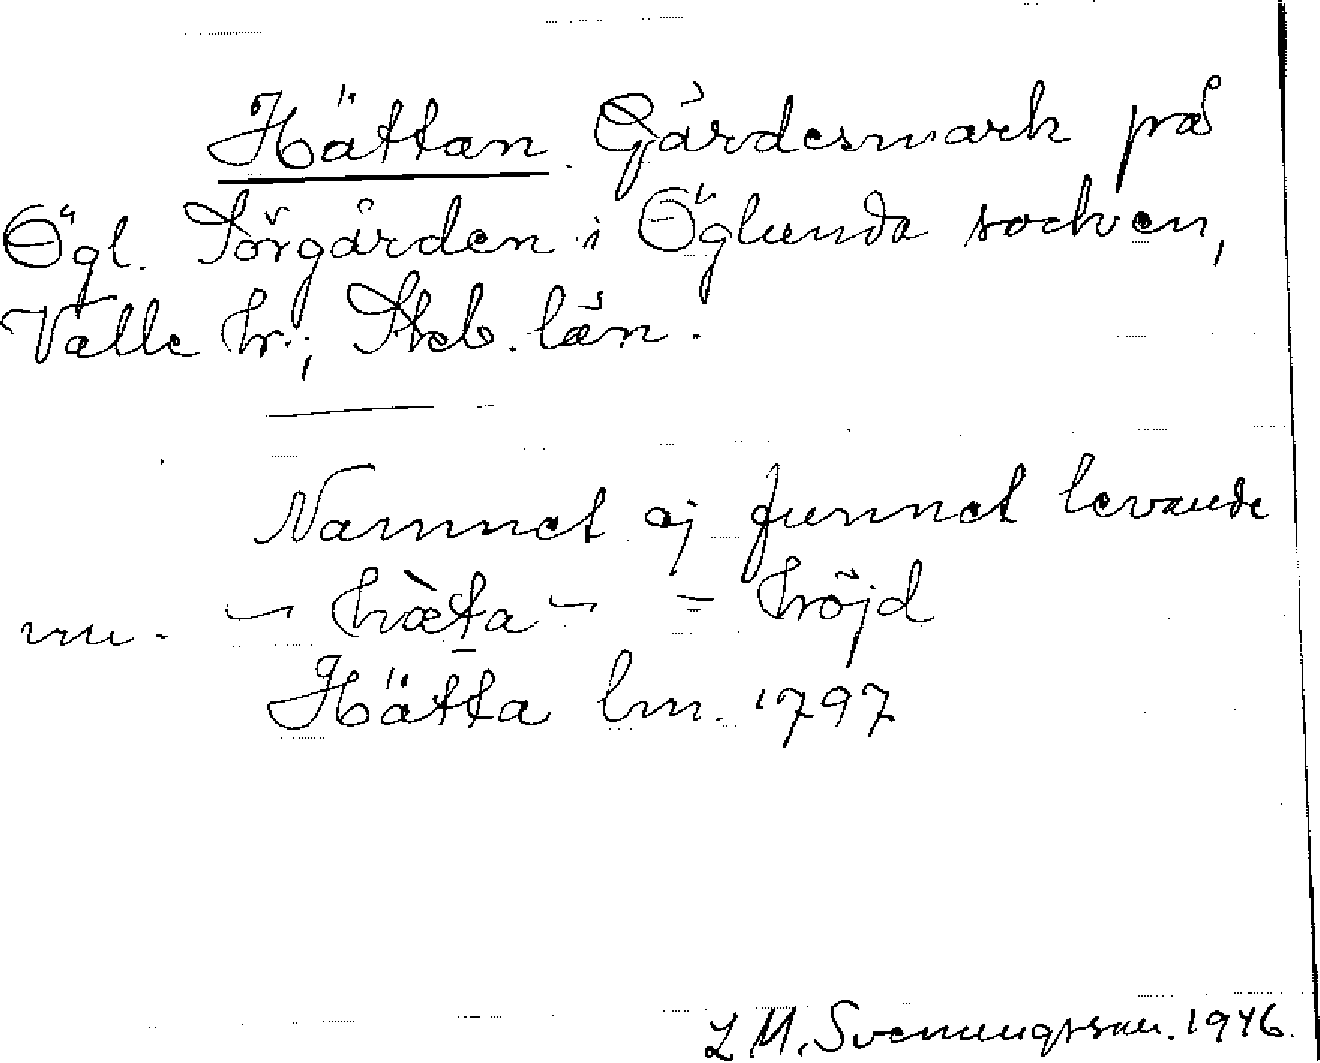 Hättan. Gärdesmark på
Ögl. Sörgården i Öglunda socken,
Valle hr; Skb. län.
Namnet ej funnet levande
nu. ~ hæ̀ta ~ = höjd
Hätta lm. 1797
L. M. Svenungsson. 1946.